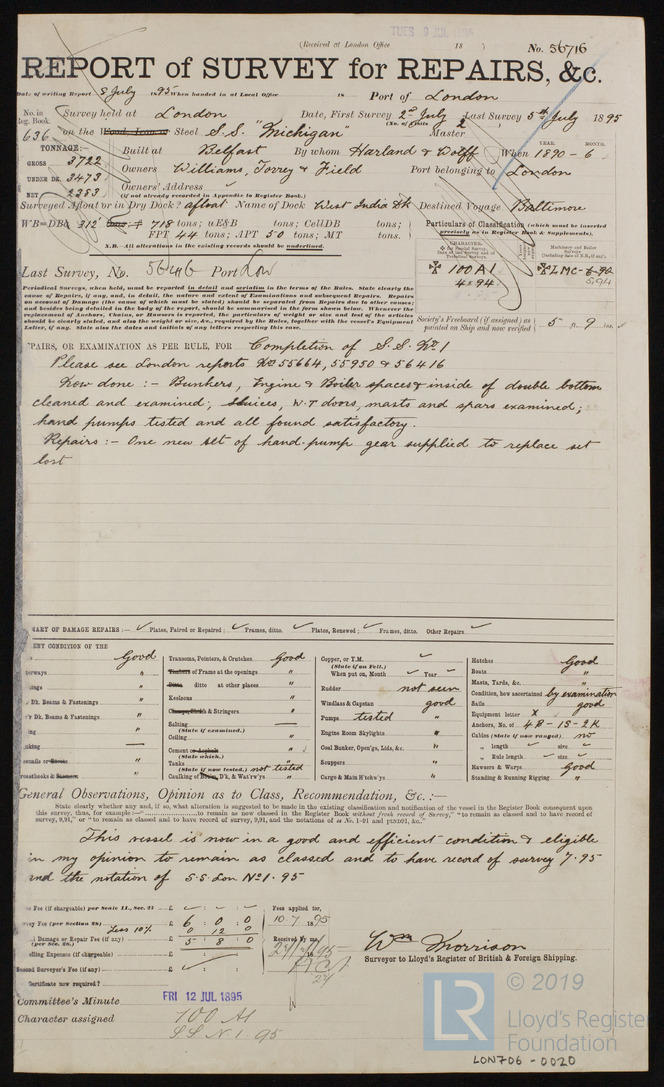 TUES 9 JUL 1895
(Received at London Office 18 )
No. 56716
REPORT of SURVEY for REPAIRS, &c.
Date of writing Report 8 July 1895 When handed in at Local Office 18 Port of London
No. in Reg. Book. Survey held at London Date, First Survey 2nd July Last Survey 5th July 1895
(No. of Visits 2
636 on the Wood, Iron or Steel S.S. "Michigan" Master
TONNAGE:—
GROSS 3722
UNDER DK. 3473
NET 2383
Built at Belfast By whom Harland & Wolff When 1890 - 6
YEAR. MONTH.
Owners Williams, Torrey & Field Port belonging to London
Owners' Address
(if not already recorded in Appendix to Register Book.)
Surveyed Afloat or in Dry Dock? afloat Name of Dock West India Dk Destined Voyage Baltimore
WB=DBa 312' 718 tons; uE&B tons; CellDB tons;
FPT 44 tons; APT 50 tons; MT tons.
N.B.—All alterations in the existing records should be underlined.
Particulars of Classification (which must be inserted precisely as in Register Book & Supplements).
CHARACTER.
Machinery and Boiler Surveys
✠ 100A1
4.94
✠LMC-6.90
5.94
Last Survey, No. 56446 Port Lon
Periodical Surveys, when held, must be reported in detail and seriatim in the terms of the Rules. State clearly the cause of Repairs, if any, and, in detail, the nature and extent of Examinations and subsequent Repairs. Repairs on account of Damage (the cause of which must be stated) should be separated from Repairs due to other causes; and besides being detailed in the body of the report, should be summarised in the form shown below. Whenever the replacement of Anchors, Chains, or Hawsers is reported, the particulars of weight or size and test of the articles should be clearly stated, and also the weight or size, &c., required by the Rules, together with the vessel's Equipment Letter, if any. State also the dates and initials of any letters respecting this case.
Society's Freeboard (if assigned) as painted on Ship and now verified 5 ft 9 ins.
PAIRS, OR EXAMINATION AS PER RULE, FOR Completion of S.S. No 1
Please see London reports Nos 55664, 55950 & 56416
Now done :- Bunkers, Engine & Boiler spaces & inside of double bottom
cleaned and examined; Sluices, W.T doors, masts and spars examined;
hand pumps tested and all found satisfactory.
Repairs :- One new set of hand pump gear supplied to replace set
lost
MARY OF DAMAGE REPAIRS:— Plates, Faired or Repaired; Frames, ditto. Plates, Renewed; Frames, ditto. Other Repairs
ENT CONDITION OF THE
Good
erways "
ings "
Dk. Beams & Fastenings "
r Dk. Beams & Fastenings "
ing
nking —
"
Breasthooks & Stemson "
Transoms, Pointers, & Crutches Good
Timbers of Frame at the openings "
Ditto ditto at other places "
Keelsons "
Clamps, Shelfs & Stringers "
Salting —
(State if examined.)
Ceiling "
Cement or Asphalt "
(State which.)
Tanks not tested
(State if now tested.)
Caulking of Bot'm, D'k, & Wat'rw'ys "
Copper, or Y.M.
(State if on Felt.)
When put on, Month Year
Rudder not seen
Windlass & Capstan good
Pumps tested "
Engine Room Skylights "
Coal Bunker, Open'gs, Lids, &c. "
Scuppers "
Cargo & Main H'tchw'ys "
Hatches Good
Boats "
Masts, Yards, &c. "
Condition, how ascertained by examination
Sails good
Equipment letter X
Anchors, No. of 4B-1S-2K
Cables (State if now ranged) no
" length size
" Rule length size
Hawsers & Warps Good
Standing & Running Rigging "
General Observations, Opinion as to Class, Recommendation, &c. :—
State clearly whether any, and if so, what alteration is suggested to be made in the existing classification and notification of the vessel in the Register Book consequent upon this survey, thus, for example:—"............to remain as now classed in the Register Book without fresh record of Survey," "to remain as classed and to have record of survey, 9,91," or "to remain as classed and to have record of survey, 9,91, and the notations of ss No. 1-91 and ptND91, &c."
This vessel is now in a good and efficient condition & eligible
in my opinion to remain as classed and to have record of survey 7.95
and the notation of S.S. Lon No1. 95
Fee (if chargeable) per Scale 11., Sec. 27 £
vey Fee (per Section 28) £ 6 : 0 : 0
Less 10% 0 12 0
Damage or Repair Fee (if any) £ 5 : 8 : 0
(per Sec. 28.)
elling Expenses (if chargeable) £
Second Surveyor's Fee (if any) £
Certificate now required?
Fees applied for,
10.7 1895
Received by me,
Wm Morrison
Surveyor to Lloyd's Register of British & Foreign Shipping.
Committee's Minute FRI 12 JUL 1895
Character assigned 100 A1
SS N 1. 95
LR
© 2019
Lloyd's Register
Foundation
LON706-0020